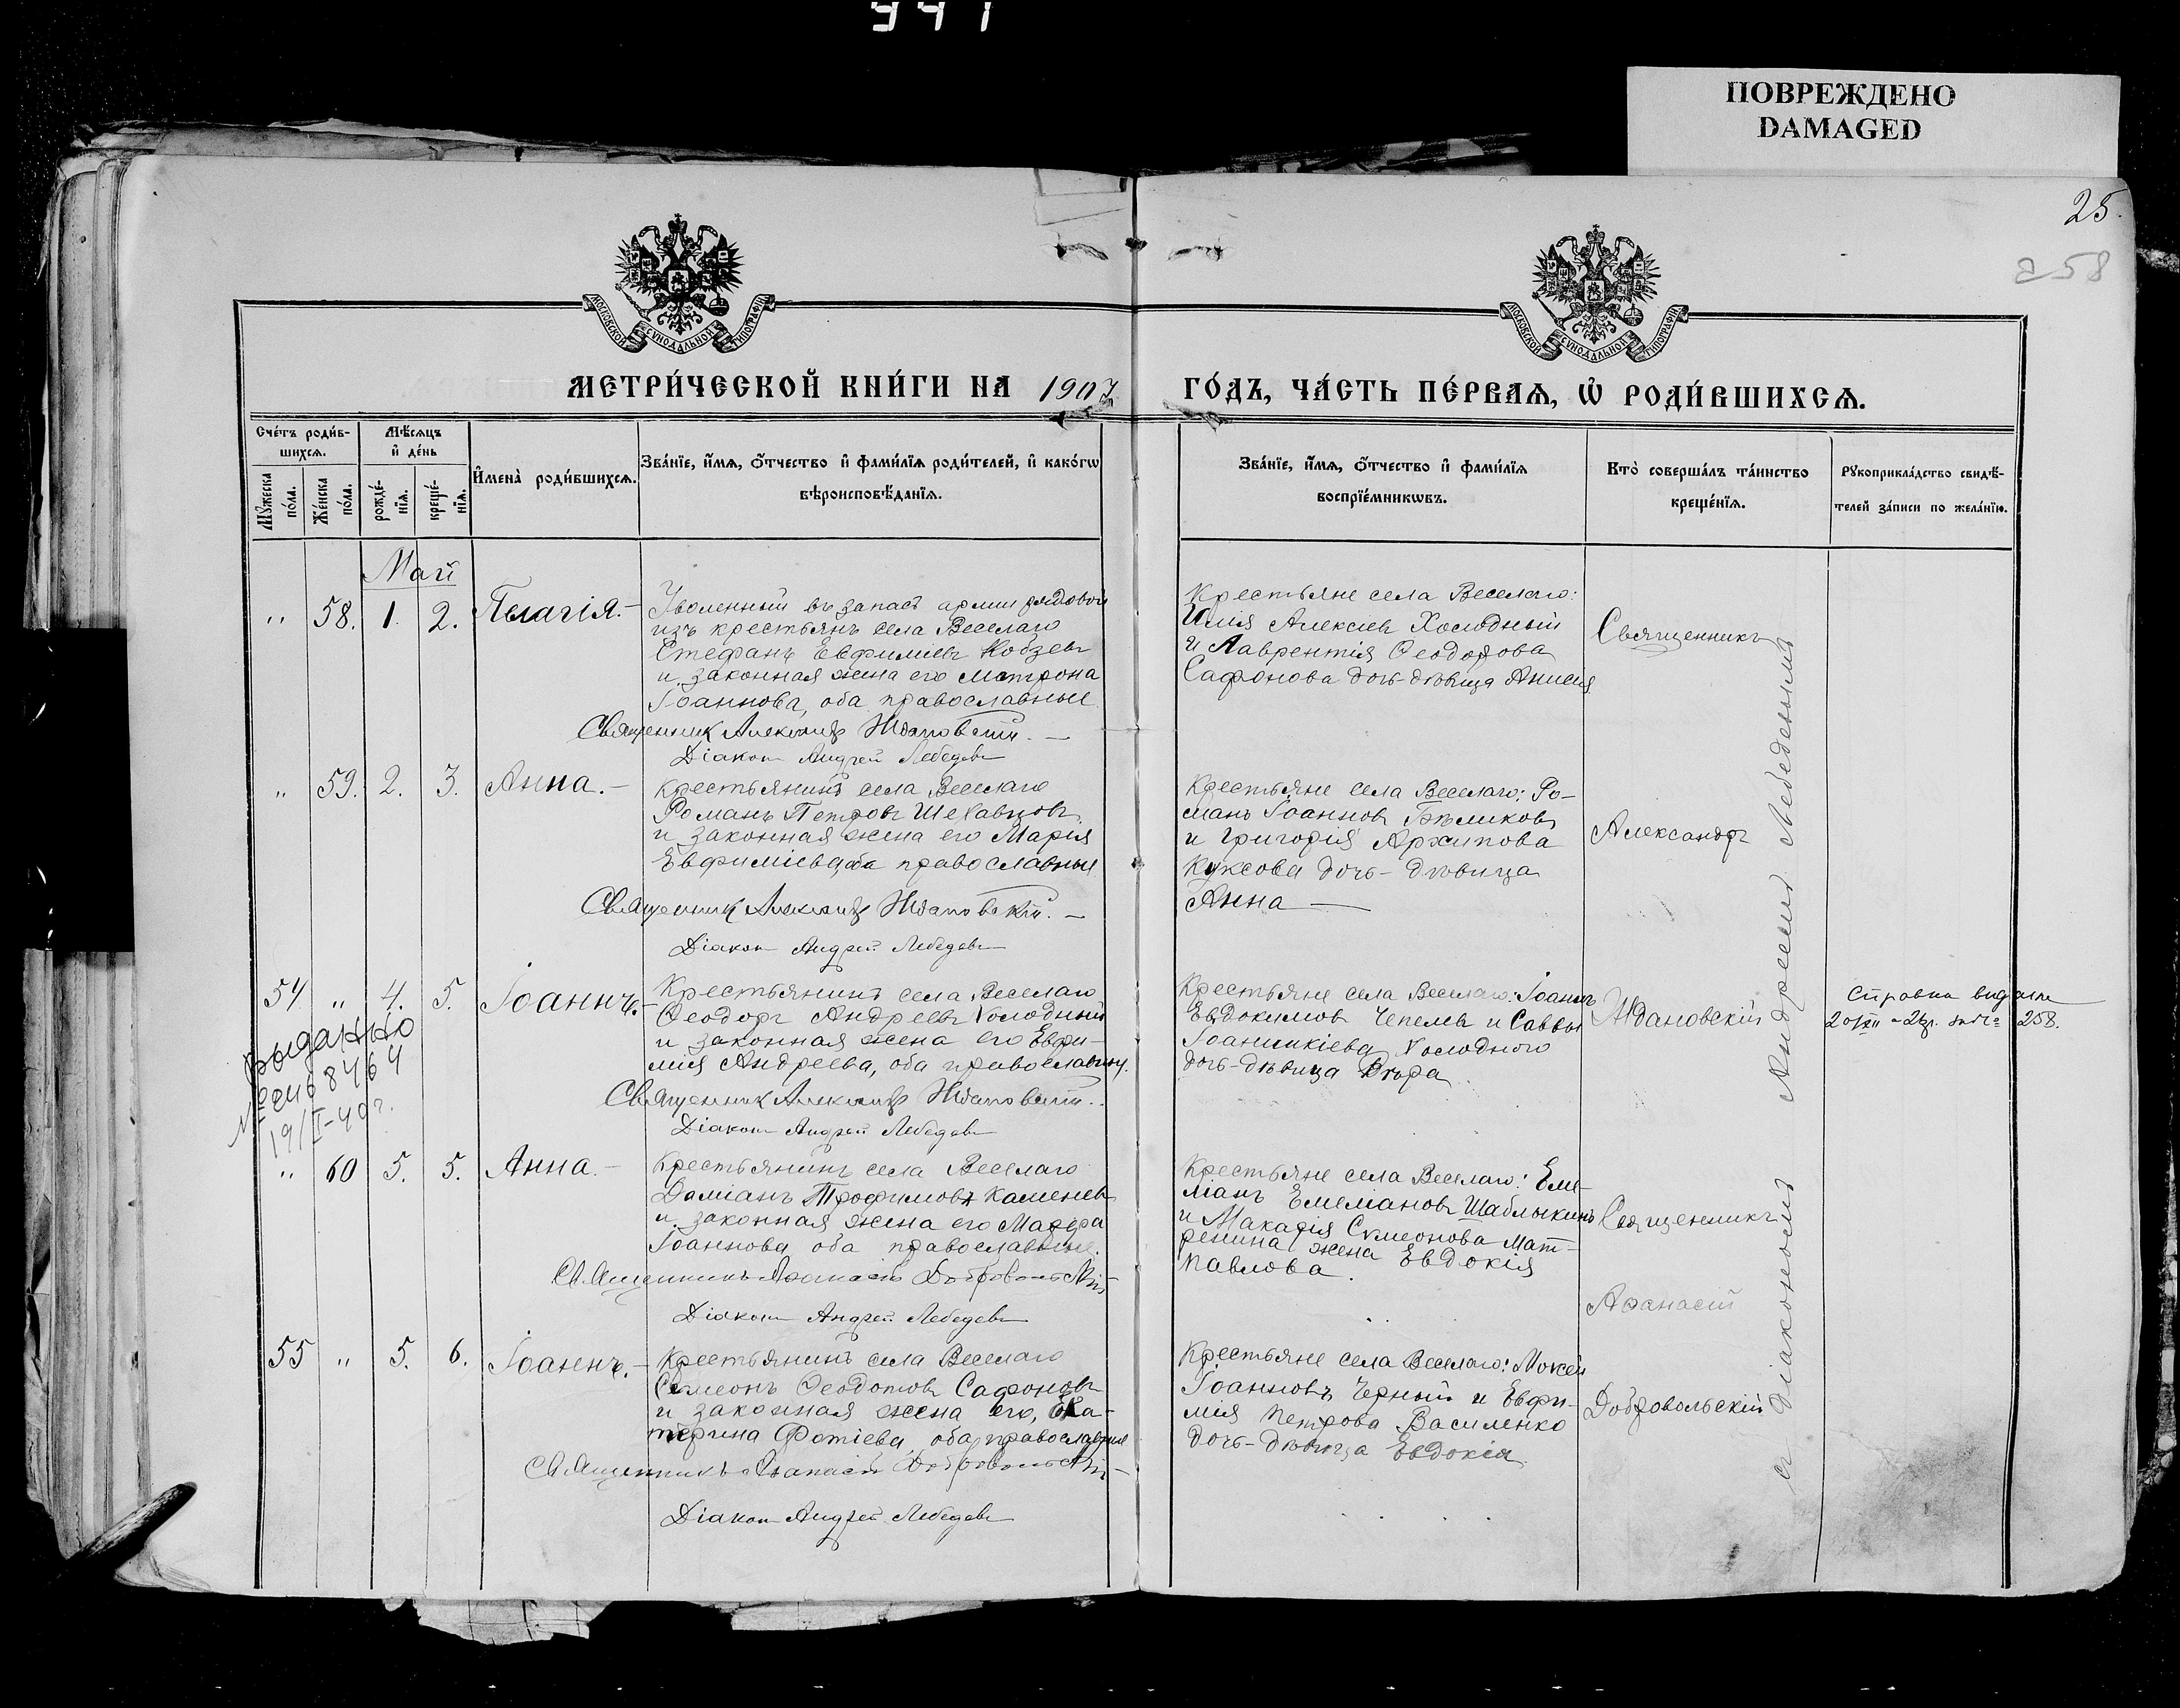 941
ПОВРЕЖДЕНО
DAMAGED
25.
258
МОСКОВСКОЙ СѴНОДАЛЬНОЙ ТИПОГРАФІИ
МОСКОВСКОЙ СѴНОДАЛЬНОЙ ТИПОГРАФІИ
МЕТРИ́ЧЕСКОЙ КНИ́ГИ НА 1907 ГО́ДЪ, ЧА́СТЬ ПЕ́РВАѦ, Ѡ РОДИ́ВШИХСѦ.
Сче́тъ роди́в-
шихсѧ.
Мꙋ́жеска по́ла.
Же́нска по́ла.
Мѣ́сѧцъ
и҆ де́нь
рожде́-
нїѧ.
креще́-
нїѧ.
И҆мена̀ роди́вшихсѧ.
Зва́нїе, и҆́мѧ, ѻ҆́тчество и҆ фами́лїѧ роди́телей, и҆ како́гѡ
вѣроисповѣ́данїѧ.
Зва́нїе, и҆́мѧ, ѻ҆́тчество и҆ фами́лїѧ
воспрїе́мникѡвъ.
Кто̀ соверша́лъ та́инство
креще́нїѧ.
Рꙋкоприкла́дство свидѣ́-
телей за́писи по жела́нїю.
Май
" 58. 1. 2. Пелагія.-
Уволенный въ запасъ арміи рядовой
изъ крестьянъ села Веселаго
Стефанъ Евфиміевъ Кобзевъ
и законная жена его Матрона
Іоаннова, оба православные
Священник Александр Ждановский. —
Діакон Андрей Лебедев
Крестьяне села Веселаго:
Илія Алексіев Холодный
и Лаврентія Ѳеодорова
Сафонова дочь-дѣвица Анисія
Священникъ
" 59. 2. 3. Анна.-
Крестьянинъ села Веселаго
Романъ Петровъ Шекавцовъ
и законная жена его Марія
Евфиміева, оба православные
Священник Александр Ждановскій. —
Діакон Андрей Лебедев
Крестьяне села Веселаго: Ро-
манъ Іоаннов Бѣликовъ
и Григорія Архипова
Куксова дочь-дѣвица
Анна —
Александр
54 " 4. 5. Іоаннъ.-
Крестьянинъ села Веселаго
Ѳеодоръ Андреевъ Холодный
и законная жена его Евфи-
мія Андреева, оба православны.
Священник Александр Ждановский.
Діакон Андрей Лебедев
Крестьяне села Веселаго: Іоаннъ
Евдокимов Чепелев и Саввы
Іоанникіева Холодного
дочь-дѣвица Вѣра
Ждановскій
Справка выдана
258.
Выданно
№ 2468464
19/I-40г.
" 60 5. 5. Анна.-
Крестьянинъ села Веселаго
Даміанъ Трофимовъ Каменев
и законная жена его Марѳа
Іоаннова оба православные.
Священникъ Аѳанасій Добровольскій
Діакон Андрей Лебедев
Крестьяне села Веселаго: Еме-
ліанъ Емеліановъ Шаблыкинъ
и Макарія Сѵмеонова Мат-
ренина жена Евдокія
Павлова.
Священникъ
Аѳанасій
55 " 5. 6. Іоаннъ.-
Крестьянинъ села Веселаго
Сѵмеонъ Ѳеодотовъ Сафоновъ
и законная жена его, Ека-
терина Фотіева, оба православные
Священникъ Аѳанасій Добровольскій
Діакон Андрей Лебедев
Крестьяне села Веселаго: Мокей
Іоанновъ Черный и Евфи-
мія Петрова Василенко
дочь-дѣвица Евдокія
Добровольскій
съ діакономъ Андреемъ Лебедевымъ